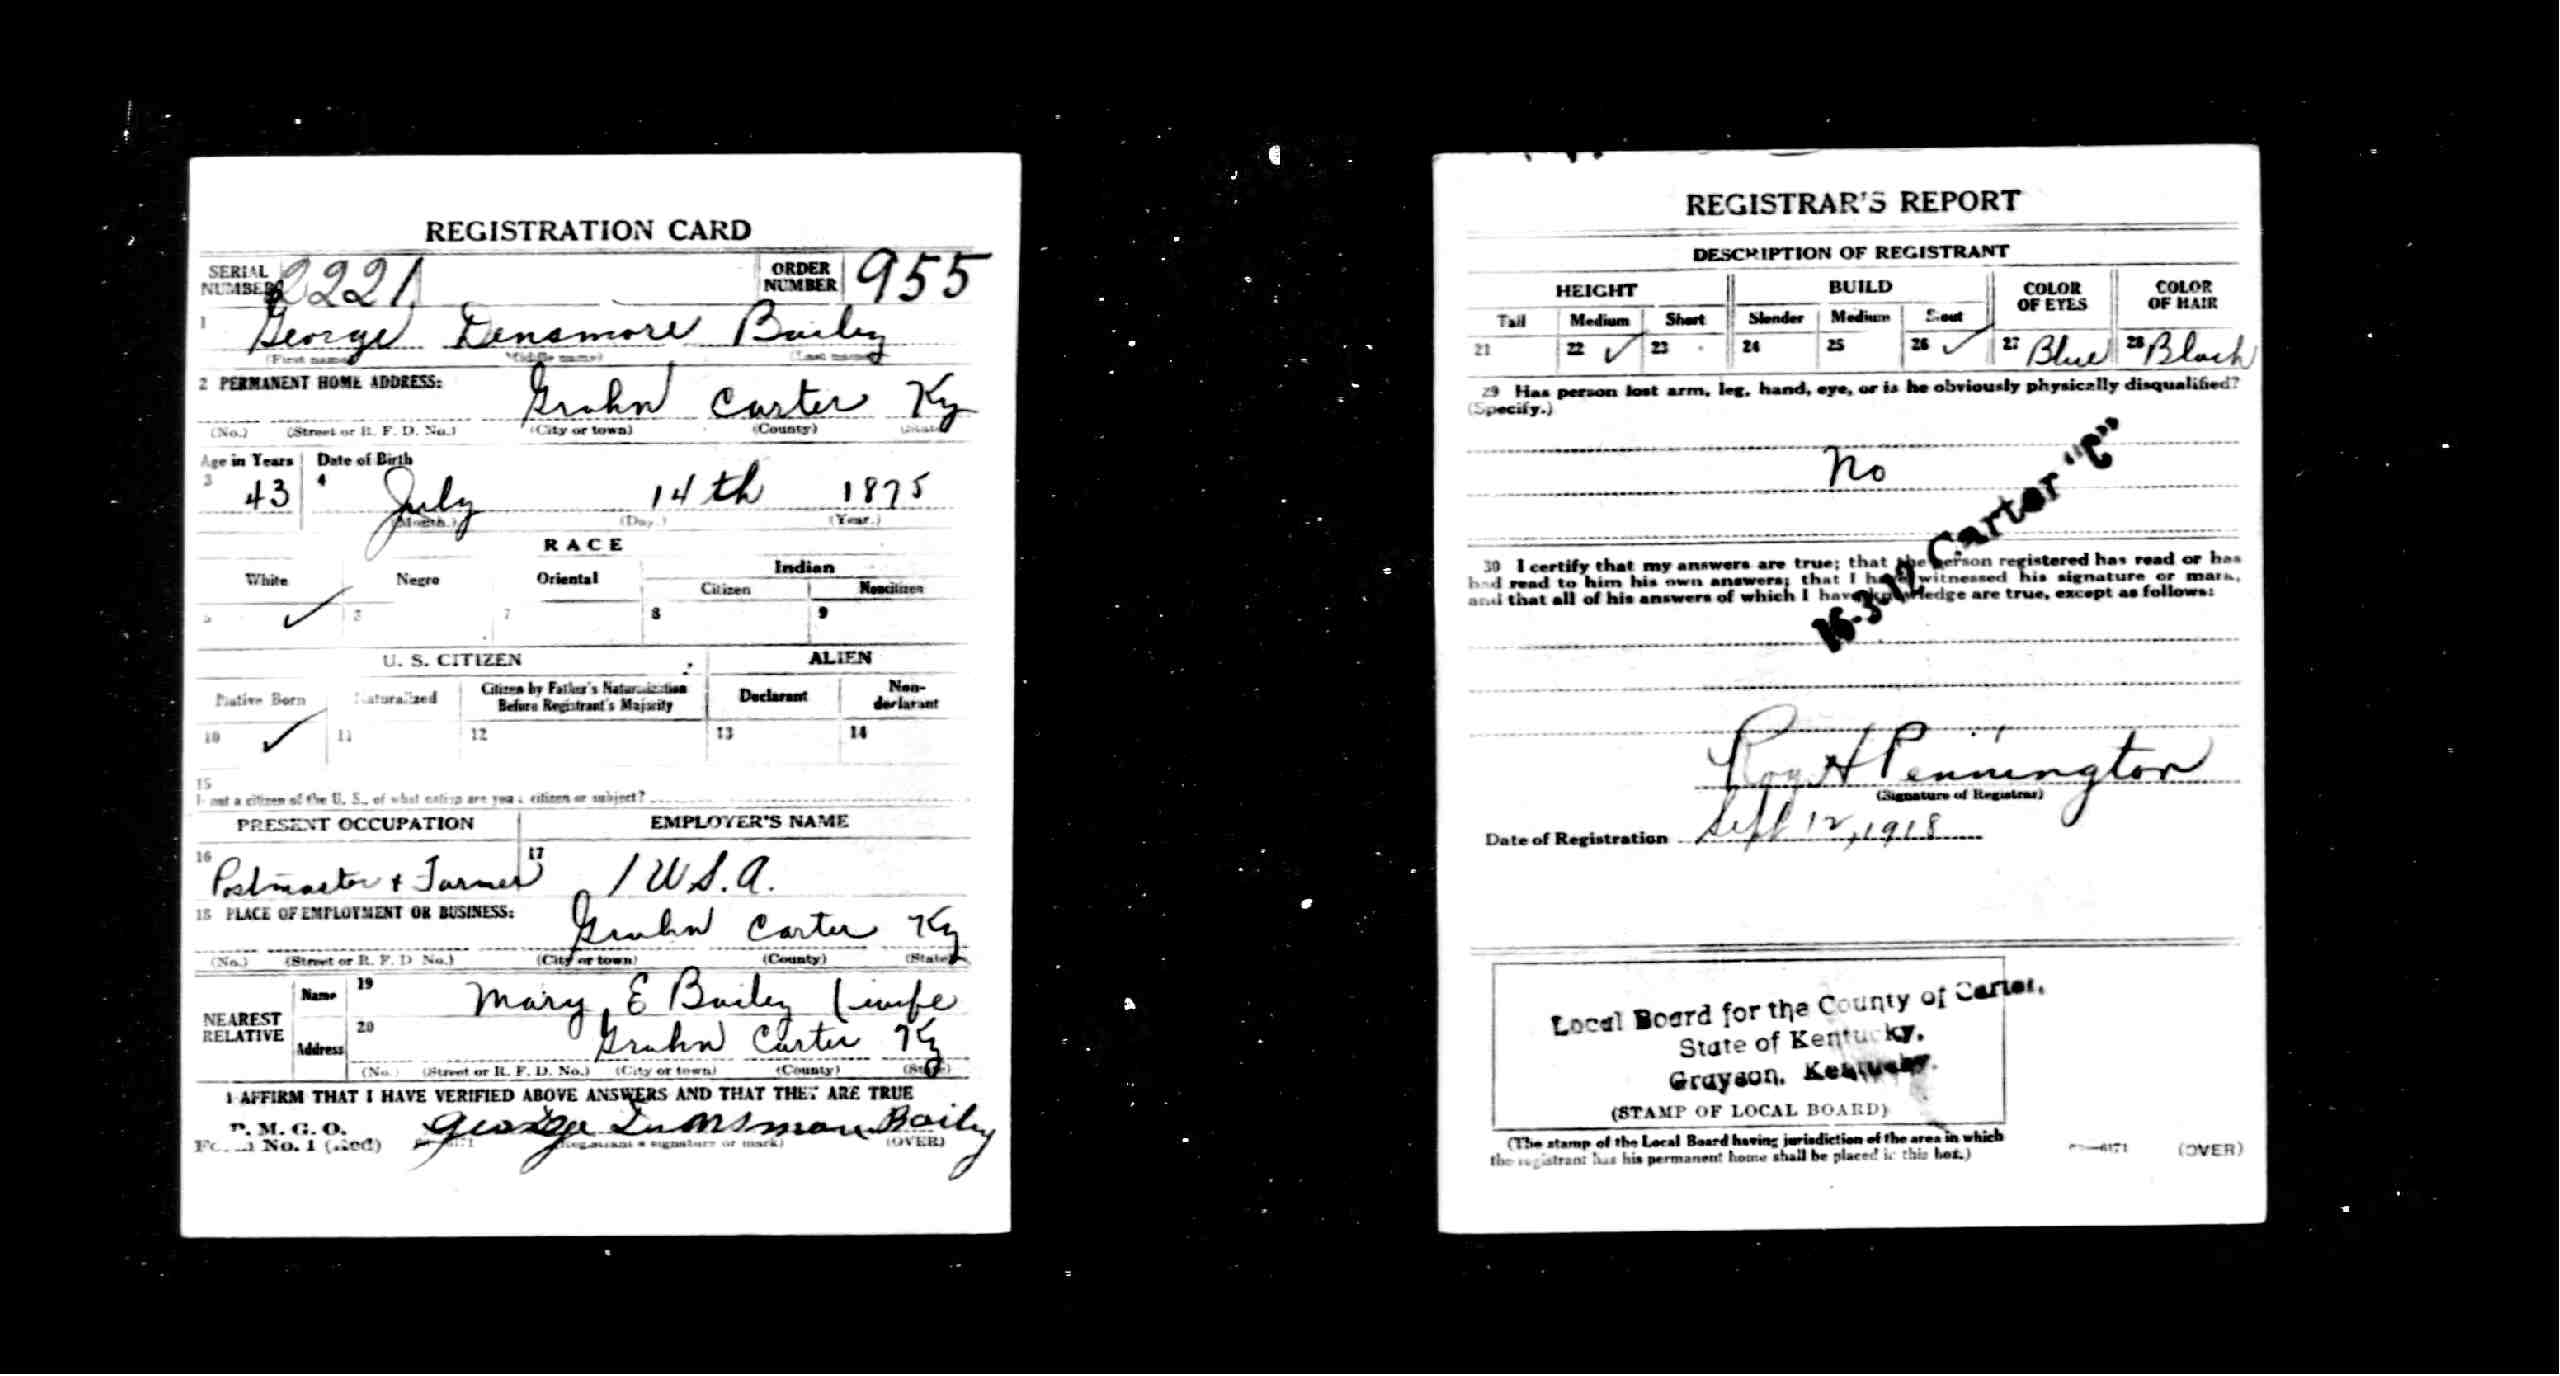 REGISTRATION CARD
SERIAL NUMBER 2221 ORDER NUMBER 955
1 George Densmore Bailey
(First name) (Middle name) (Last name)
2 PERMANENT HOME ADDRESS:
Grahn Carter Ky
(No.) (Street or R. F. D. No.) (City or town) (County) (State)
Age in Years Date of Birth
3 43 4 July 14th 1875
(Month.) (Day.) (Year.)
RACE
White Negro Oriental Indian
Citizen Noncitizen
5 ✓ 6 7 8 9
U. S. CITIZEN ALIEN
Native Born Naturalized Citizen by Father's Naturalization Before Registrant's Majority Declarant Non-declarant
10 ✓ 11 12 13 14
15
If not a citizen of the U. S., of what nation are you a citizen or subject?
PRESENT OCCUPATION EMPLOYER'S NAME
16 Postmaster & Farmer 17 S.A.
18 PLACE OF EMPLOYMENT OR BUSINESS:
Grahn Carter Ky
(No.) (Street or R. F. D. No.) (City or town) (County) (State)
NEAREST RELATIVE Name 19 Mary E Bailey (wife
Address 20 Grahn Carter Ky
(No.) (Street or R. F. D. No.) (City or town) (County) (State)
I AFFIRM THAT I HAVE VERIFIED ABOVE ANSWERS AND THAT THEY ARE TRUE
P. M. G. O.
Form No. 1 (Red) George Bailey
(Registrant's signature or mark) (OVER)
REGISTRAR'S REPORT
DESCRIPTION OF REGISTRANT
HEIGHT BUILD COLOR OF EYES COLOR OF HAIR
Tall Medium Short Slender Medium Stout
21 22 ✓ 23 24 25 26 ✓ 27 Blue 28 Black
29 Has person lost arm, leg, hand, eye, or is he obviously physically disqualified?
(Specify.)
No
16-3-12 Carter "C"
30 I certify that my answers are true; that the person registered has read or has
had read to him his own answers; that I have witnessed his signature or mark,
and that all of his answers of which I have knowledge are true, except as follows:
Roy H Pennington
(Signature of Registrar)
Date of Registration Sept 12, 1918
Local Board for the County of Carter,
State of Kentucky,
Grayson, Kentucky.
(STAMP OF LOCAL BOARD)
(The stamp of the Local Board having jurisdiction of the area in which
the registrant has his permanent home shall be placed in this box.)
(OVER)